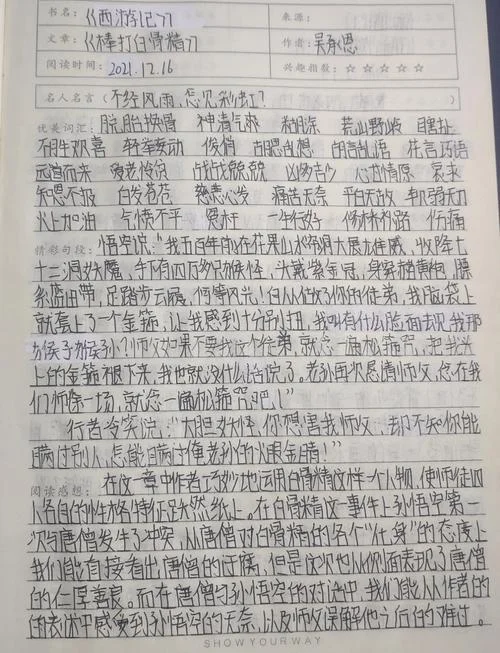 书名:《西游记》 来源:
文章:《棒打白骨精》 作者:吴承恩
阅读时间:2021.12.16 兴趣指数:☆☆☆☆☆
名人名言(不经风雨,怎见彩虹?
优美词汇:脱胎换骨 神清气爽 糊涂 荒山野岭 瞎扯
不胜欢喜 轻车熟动 俊俏 胡思乱想 胡言乱语 花言巧语
远道而来 爱老怜贫 战战兢兢 心甘情愿 哀求
知恩不报 白发苍苍 慈悲心发 痛苦无奈 平白无故 手软
火上加油 气愤不平 恩权 一生行好 修桥补路 伤痛
精彩句段:悟空说:“我五百年前在花果山水帘洞大展雄威,收降七
十二洞妖魔,手下有四万多只猴怪,头戴紫金冠,身穿赭黄袍,腰
系蓝田带,足踏步云履,何等风光!自从做了你的徒弟,我脑袋上
就套上了一个金箍,让我感到十分别扭,我叫有什么脸面去见我那
猴子猴孙?师父如果不要我这个徒弟,就念一遍松箍咒,把我头
上的金箍褪下来,我也就没什么话说了。老孙再次恳请师父,您在我
们师徒一场,就念一遍松箍咒吧!”
行者冷笑说:“大胆妖怪,你想害我师父,却不知你能
瞒过别人,怎能瞒过俺老孙的火眼金睛!”
阅读感想:在这一章中作者巧妙地运用白骨精这样一个人物,使师徒四
人各自的性格特征跃然纸上。在白骨精这一事件上孙悟空第一
次与唐僧发生了冲突,从唐僧对白骨精的各个“化身”的态度上
我们能直接看出唐僧的迂腐,但是这次也从侧面表现了唐僧
的仁厚善良。而在唐僧与孙悟空的对话中,我们能从作者的
的表述中感受到孙悟空的无奈,以及师父误解他之后的难过。
SHOW YOUR WAY